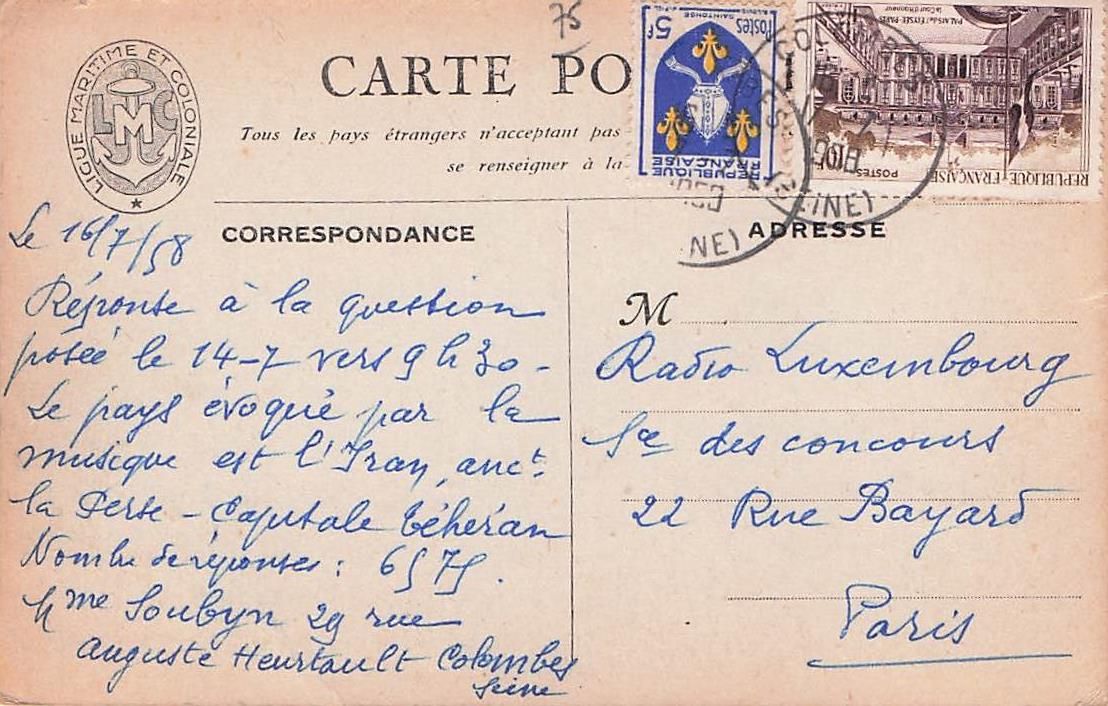 75
LIGUE MARITIME ET COLONIALE
LMC
CARTE PO
Tous les pays étrangers n'acceptant pas
se renseigner à la
5F
Postes
SAINTONGE
REPUBLIQUE
FRANÇAISE
PALAIS de l'ÉLYSÉE-PARIS
la Cour d'Honneur
POSTES
REPUBLIQUE-FRANÇAISE
INE)
NE)
CORRESPONDANCE
Le 16/7/58
Réponse à la question
posée le 14-7 vers 9 h 30 -
Le pays évoqué par la
musique est l'Iran, anct
la Perse - Capitale Téhéran
Nombre de réponses : 6575.
Mme Soubyn 29 rue
Auguste Heurtault Colombes
Seine
ADRESSE
M
Radio Luxembourg
Sce des concours
22 Rue Bayard
Paris